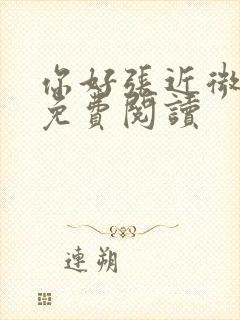 你好张近微
免費閱讀
連朔